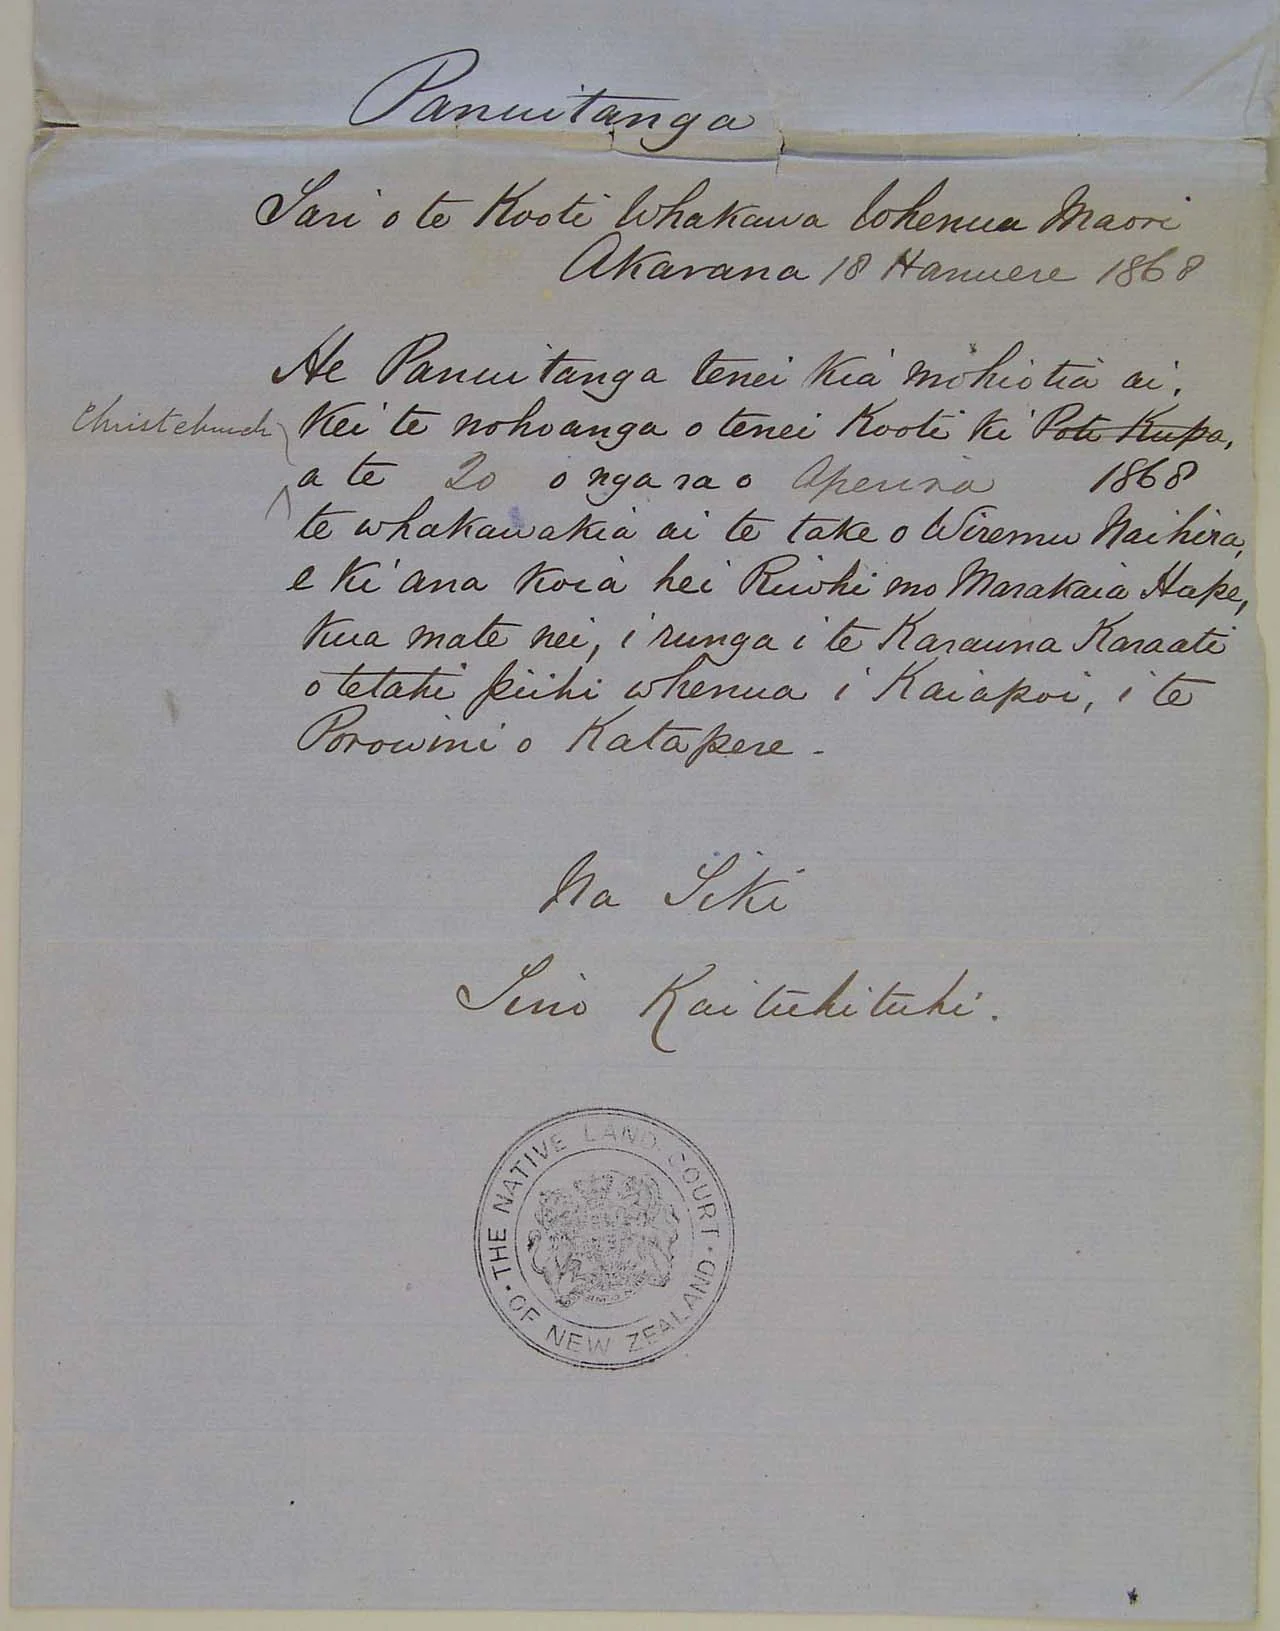 Panuitanga
Tari o te Kooti Whakawa Whenua Maori
Akarana 18 Hanuere 1868
He Panuitanga tenei kia mohiotia ai,
Christchurch
Kei te nohoanga o tenei Kooti ki Pote Kupa,
a te 20 o nga ra o Aperira 1868
te whakawakia ai te take o Wiremu Naihira,
e ki ana koia hei Riiwhi mo Marakaia Hape,
kua mate nei, i runga i te Karauna Karaati
o tetahi piihi whenua i Kaiapoi, i te
Porowini o Katapere -
Na Tiki
Tino Kaituhituhi.
THE NATIVE LAND COURT
OF NEW ZEALAND